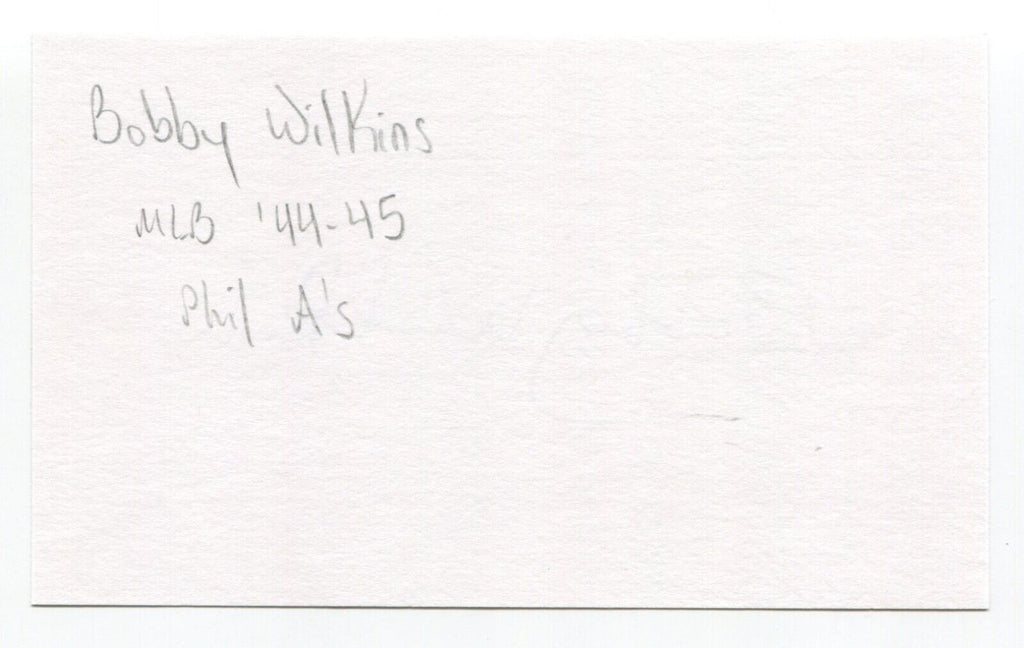 Bobby Wilkins
MLB '44-45
Phil A's